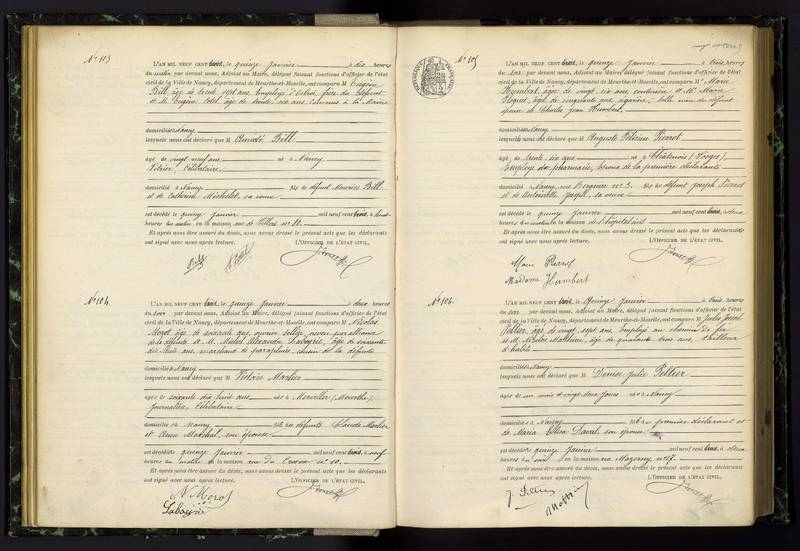 N° 103
L'AN MIL NEUF CENT trois, le quinze janvier à dix heures
du matin par devant nous, Adjoint au Maire, délégué faisant fonctions d'officier de l'état
civil de la Ville de Nancy, département de Meurthe-et-Moselle, ont comparu M Eugène
Bill, âgé de trente sept ans employé d'octroi, frère du défunt
et M. Eugène âgé de trente six ans à la Mairie
domiciliés Nancy
lesquels nous ont déclaré que M Amédé Bill
âgé de vingt neuf ans né à Nancy
Vitrier, Célibataire,
domicilié à Nancy fils de défunt Maurice Bill
et de Catherine Michelet, sa veuve
est décédé quinze janvier mil neuf cent trois, à
heures du matin en la maison, rue de Villers n° 10.
Et après nous être assuré du décès, nous avons dressé le présent acte que les déclarants
ont signé avec nous après lecture. L'OFFICIER DE L'ÉTAT CIVIL,
Bill
N° 104
L'AN MIL NEUF CENT trois, le quinze janvier à deux heures
du soir par devant nous, Adjoint au Maire, délégué faisant fonctions d'officier de l'état
civil de la Ville de Nancy, département de Meurthe-et-Moselle, ont comparu M Nicolas
Morot, âgé de soixante ans, ouvrier sellier, neveu par alliance
de la défunte et M. Alexandre Laboyrie, âgé de soixante
dix huit ans, marchand de parapluies, voisin de la défunte
domiciliés Nancy
lesquels nous ont déclaré que M Victoire Marlier
âgée de soixante dix huit ans née à Merviller (Meurthe),
journalière, Célibataire
domiciliée à Nancy fille des défunts Claude Marlier
et Anne Marchal, son épouse
est décédée quinze janvier mil neuf cent trois, à neuf
heures du matin en la maison rue du n° 10.
Et après nous être assuré du décès, nous avons dressé le présent acte que les déclarants
ont signé avec nous après lecture. L'OFFICIER DE L'ÉTAT CIVIL,
N. Morot
Laboyrie
N° 105
L'AN MIL NEUF CENT trois, le quinze janvier à trois heures
du soir par devant nous, Adjoint au Maire, délégué faisant fonctions d'officier de l'état
civil de la Ville de Nancy, département de Meurthe-et-Moselle, ont comparu Me Marie
Humbert, âgée de vingt six ans couturière et Me Marie
âgée de cinquante ans belle mère du défunt
épouse de Charles Jean Humbert,
domiciliés Nancy
lesquels nous ont déclaré que M Auguste Félicien Pierrot
âgé de trente six ans né à Châtenois (Vosges),
Employé de pharmacie, époux de la première déclarante
domicilié à Nancy, rue n° 3. fils de défunt Joseph Pierrot
et de Antoinette Joseph, sa veuve
est décédé quinze janvier mil neuf cent trois, à deux
heures du matin en la maison de l'hôpital civil
Et après nous être assuré du décès, nous avons dressé le présent acte que les déclarants
ont signé avec nous après lecture. L'OFFICIER DE L'ÉTAT CIVIL,
Marie Pierrot
Madame Humbert
N° 106.
L'AN MIL NEUF CENT trois, le quinze janvier à trois heures
du soir par devant nous, Adjoint au Maire, délégué faisant fonctions d'officier de l'état
civil de la Ville de Nancy, département de Meurthe-et-Moselle, ont comparu M Jules Joseph
Pellier, âgé de vingt sept ans employé au chemin de fer
et M. Nicolas Mathieu, âgé de quarante trois ans, tailleur
d'habits
domiciliés Nancy
lesquels nous ont déclaré que M Denise Julie Pellier
âgée de un mois et vingt deux jours née à Nancy
domiciliée à Nancy fille de premier déclarant et
de Maria son épouse
est décédée quinze janvier mil neuf cent trois, à deux
heures du soir en la maison rue Mazerny n° 17.
Et après nous être assuré du décès, nous avons dressé le présent acte que les déclarants
ont signé avec nous après lecture. L'OFFICIER DE L'ÉTAT CIVIL,